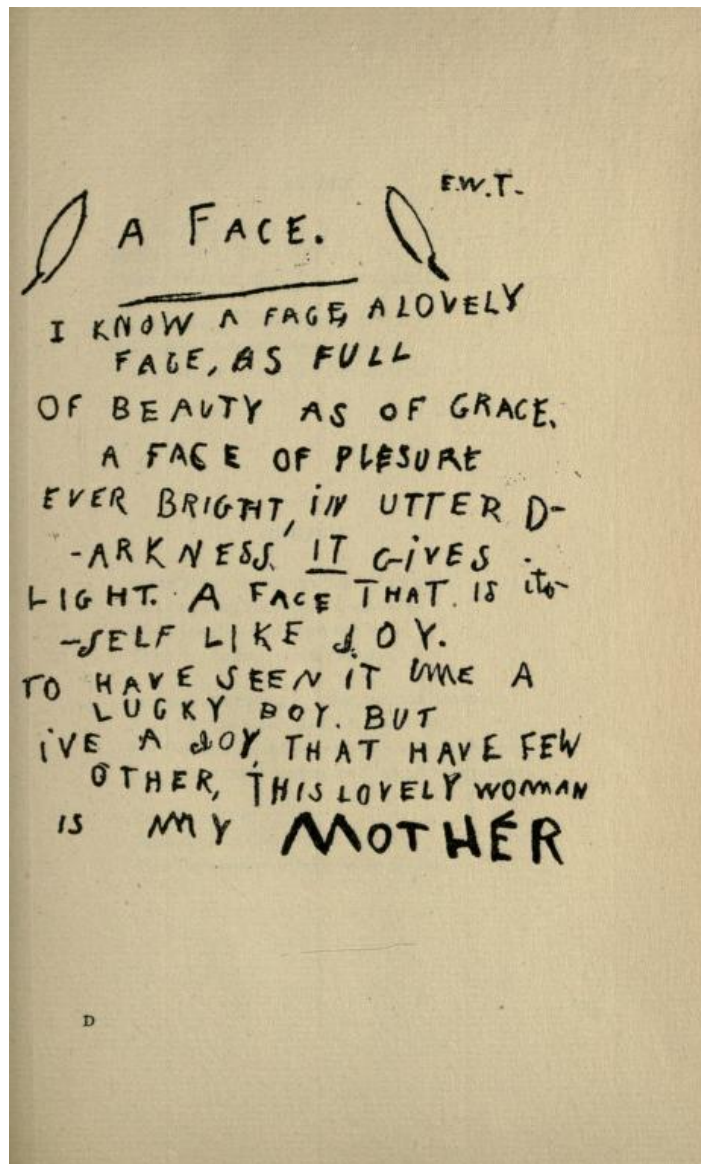 E.W.T.
A FACE.
I KNOW A FACE, A LOVELY
FACE, AS FULL
OF BEAUTY AS OF GRACE,
A FACE OF PLESURE
EVER BRIGHT, IN UTTER D-
-ARKNESS IT GIVES
LIGHT. A FACE THAT IS it-
-SELF LIKE JOY.
TO HAVE SEEN IT I'ME A
LUCKY BOY. BUT
I'VE A JOY THAT HAVE FEW
OTHER, THIS LOVELY WOMAN
IS MY MOTHER
D